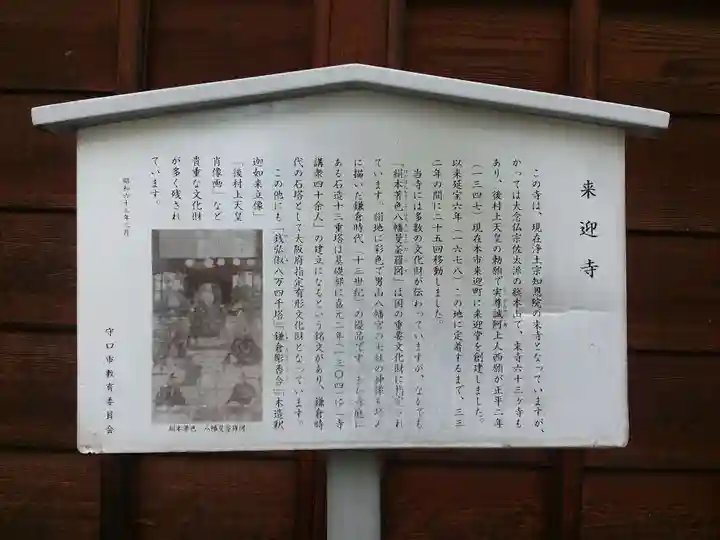 来迎寺
この寺は、現在浄土宗知恩院の末寺となっていますが、
かつては大念仏宗佐太派の総本山で、末寺六十三ヶ寺も
あり、後村上天皇の勅願で実尊誠阿上人西願が正平二年
（一三四七）現在本市来迎町に来迎堂を創建しました。
以来延宝六年（一六七八）この地に定着するまで、三三
二年の間に二十五回移動しました。
当寺には多数の文化財が伝わっていますが、なかでも
「絹本著色八幡曼荼羅図」は国の重要文化財に指定され
ています。絹地に彩色で男山八幡宮の
に描いた鎌倉時代（十三世紀）の優品です。また
ある石造十三重塔は基礎部に嘉元二年（一三〇四）に「寺
講衆四十余人」の建立になるという銘文があり、鎌倉時
代の石塔として大阪府指定有形文化財となっています。
この他にも「銭弘俶八万四千塔」「鎌倉彫香合」「木造釈
迦如来立像」
「後村上天皇
肖像画」など
貴重な文化財
が多く残され
ています。
昭和六十
守口市教育委員会
絹本著色 八幡曼荼羅図